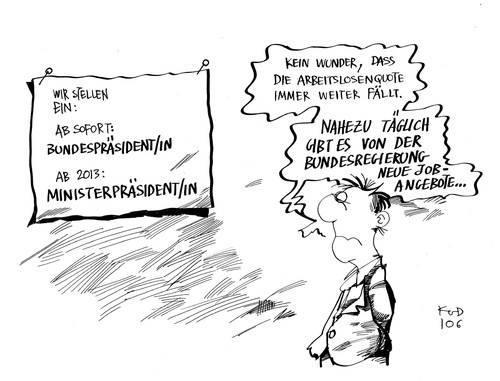 WIR STELLEN
EIN:
AB SOFORT:
BUNDESPRÄSIDENT/IN
AB 2013:
MINISTERPRÄSIDENT/IN
KEIN WUNDER, DASS
DIE ARBEITSLOSENQUOTE
IMMER WEITER FÄLLT.
NAHEZU TÄGLICH
GIBT ES VON DER
BUNDESREGIERUNG
NEUE JOB-
ANGEBOTE...
106